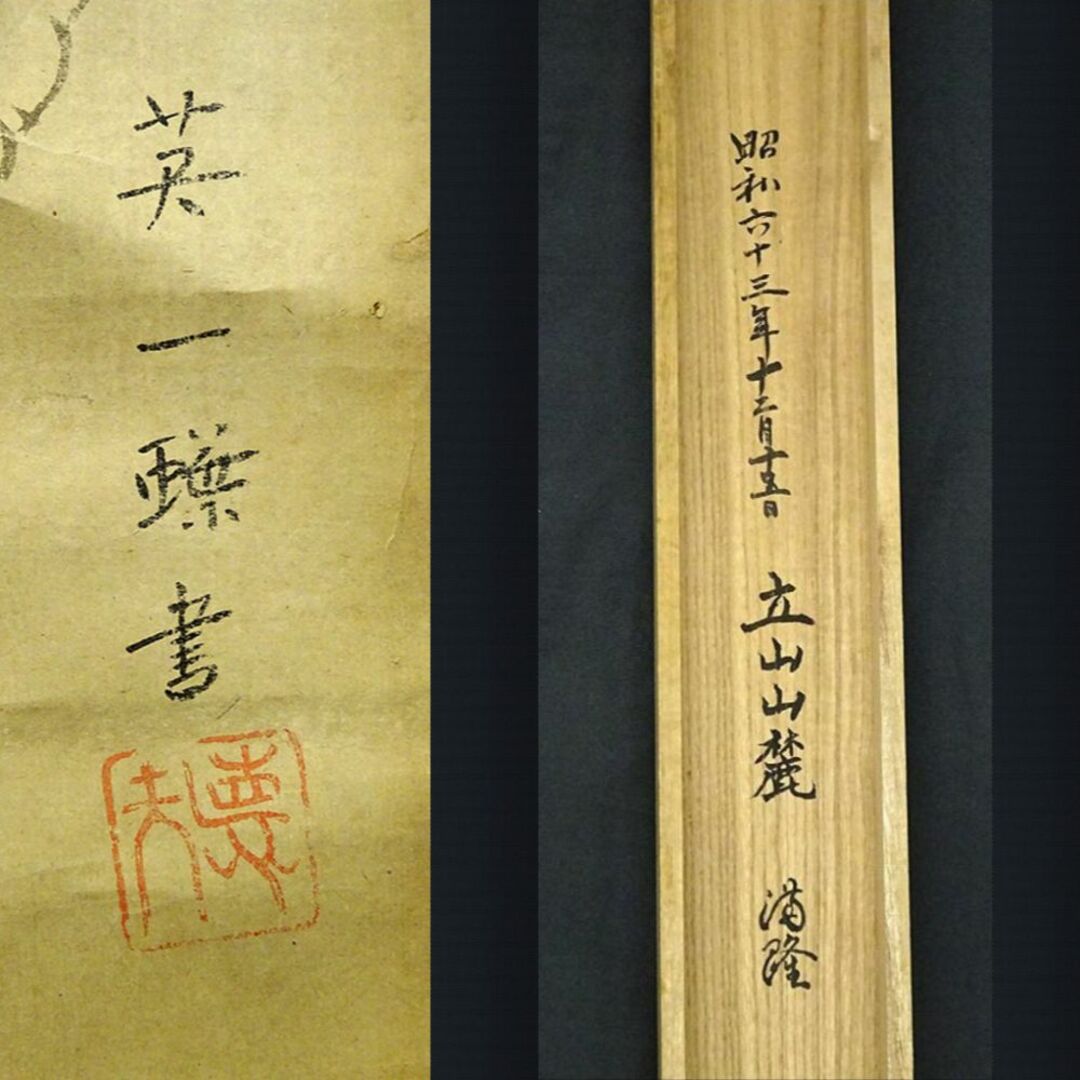 英一蝶書
昭和六十三年十二月十五日
立山山麓
満隆